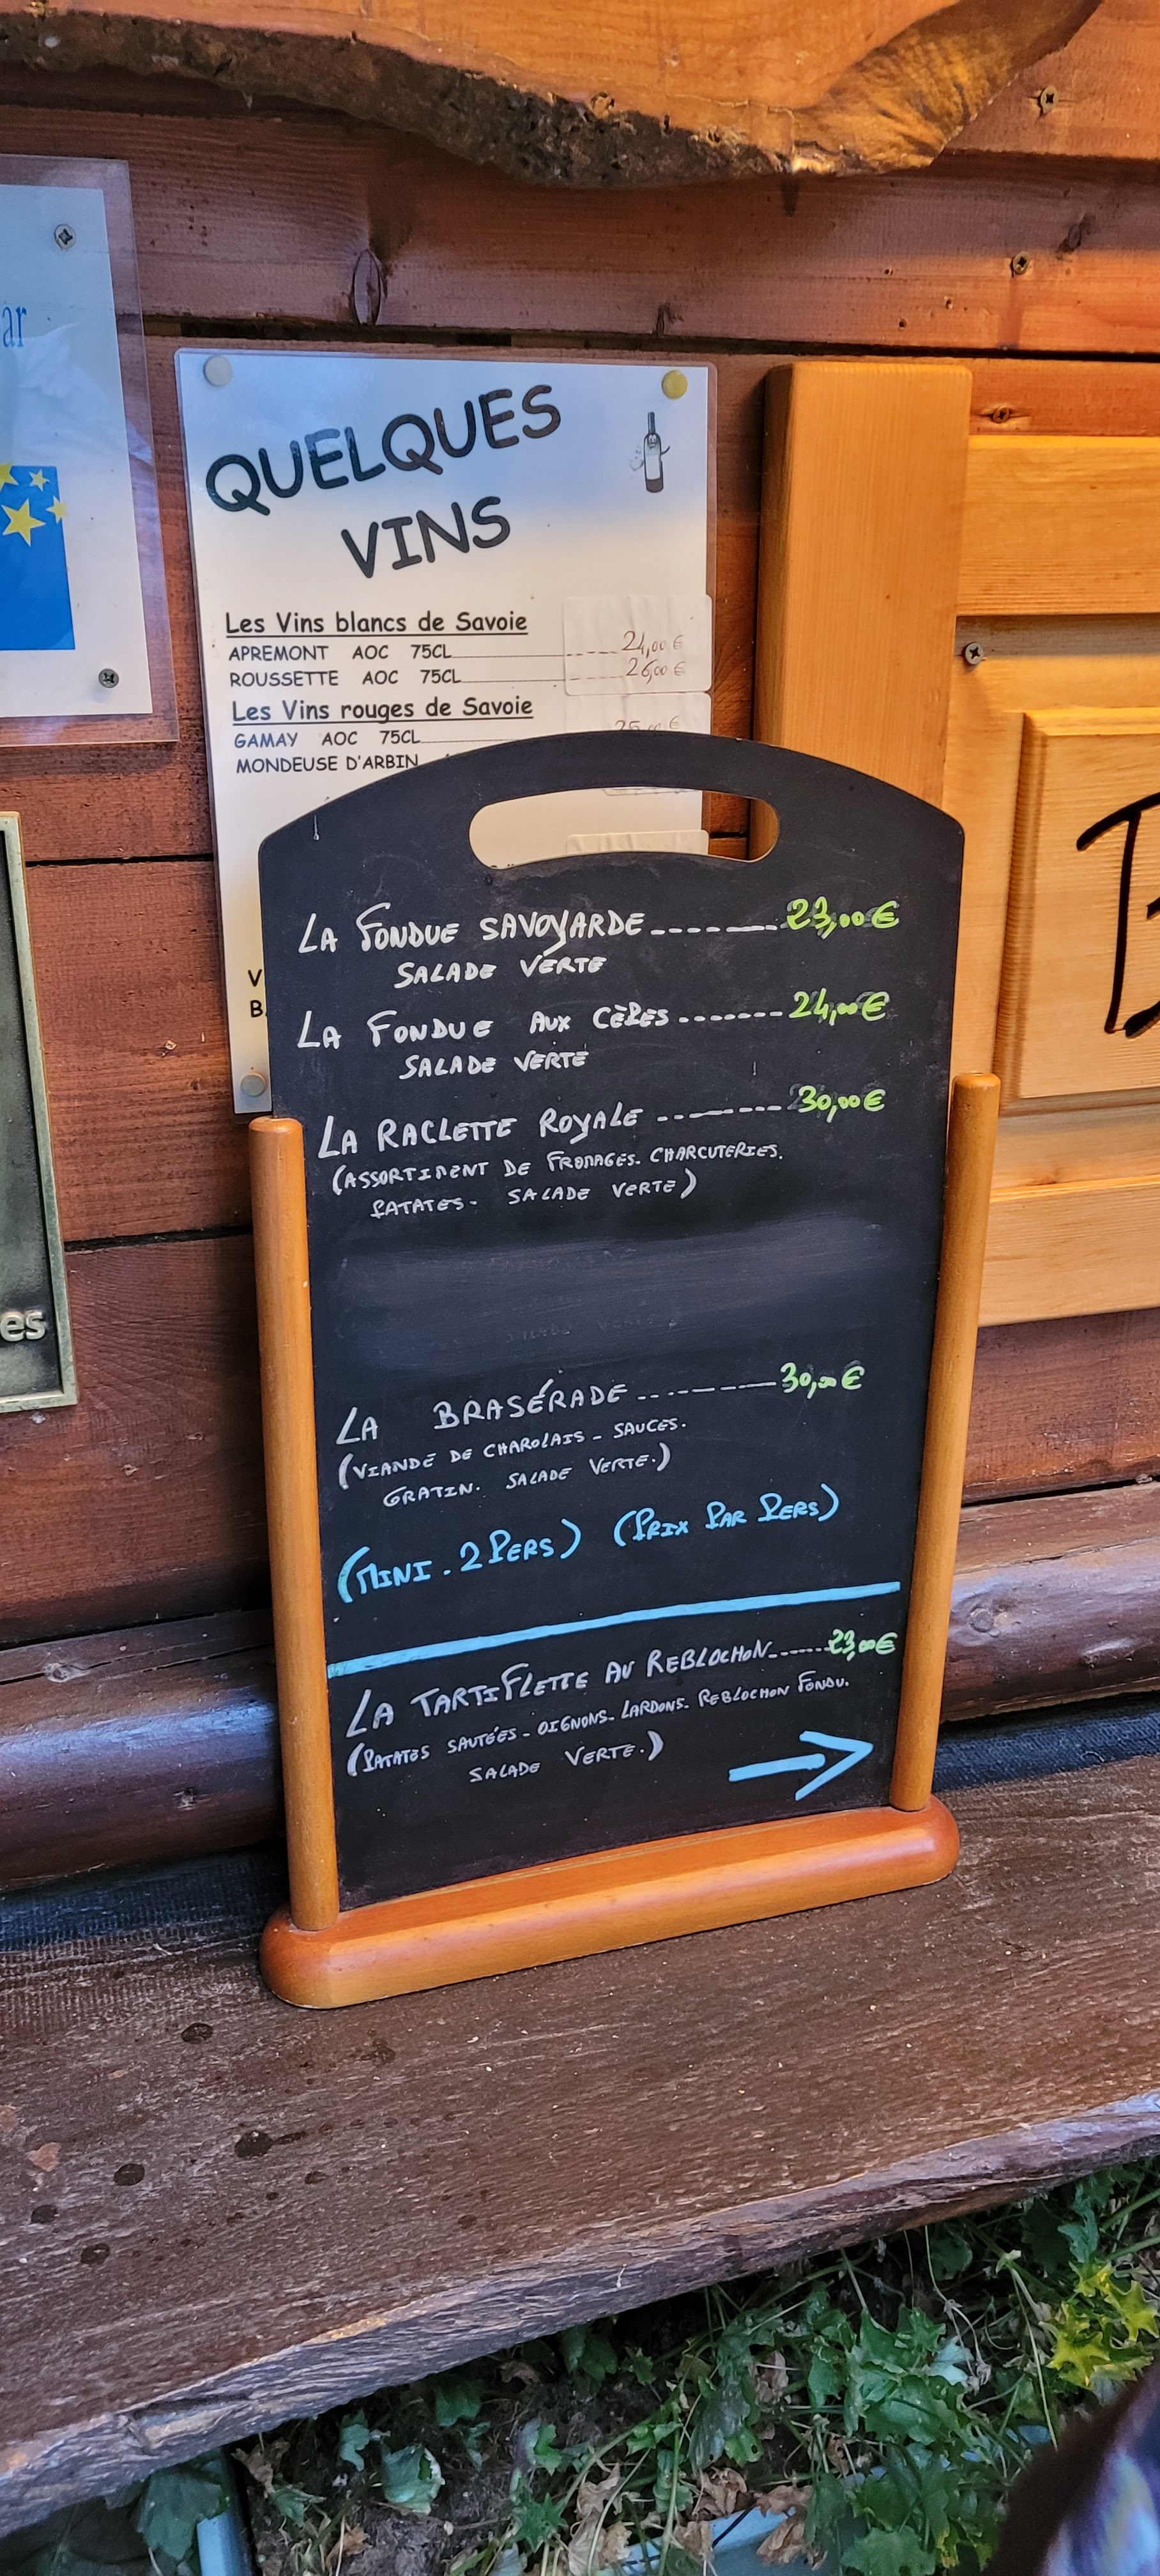 ar
QUELQUES
VINS
Les Vins blancs de Savoie
APREMONT AOC 75CL 24,00 €
ROUSSETTE AOC 75CL 26,00 €
Les Vins rouges de Savoie
GAMAY AOC 75CL
MONDEUSE D'ARBIN
V
B
es
LA FONDUE SAVOYARDE ------- 23,00 €
SALADE VERTE
LA FONDUE AUX CÈPES ....... 24,00 €
SALADE VERTE
LA RACLETTE ROYALE ------- 30,00 €
(ASSORTIMENT DE FROMAGES. CHARCUTERIES.
PATATES - SALADE VERTE)
LA BRASÉRADE ------- 30,00 €
(VIANDE DE CHAROLAIS - SAUCES.
GRATIN. SALADE VERTE.)
(MINI. 2 PERS) (PRIX PAR PERS)
LA TARTIFLETTE AU REBLOCHON ------ 23,00 €
(PATATES SAUTÉES - OIGNONS - LARDONS - REBLOCHON FONDU.
SALADE VERTE.)